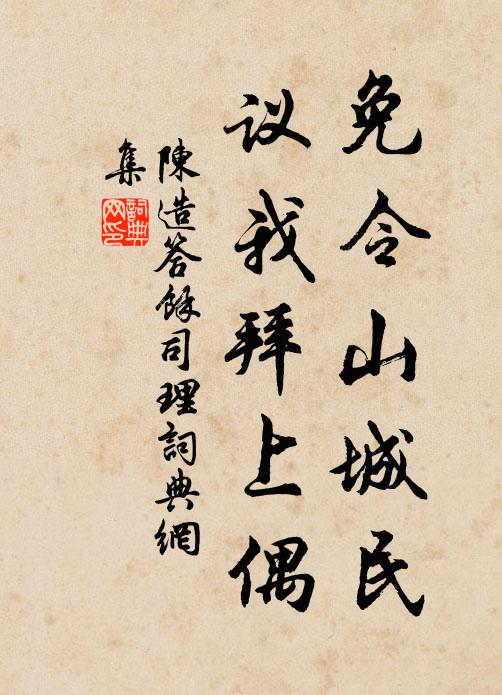 免令山城民
议我拜上偶
陳造答餘司理詞典網
集
詞典
网印